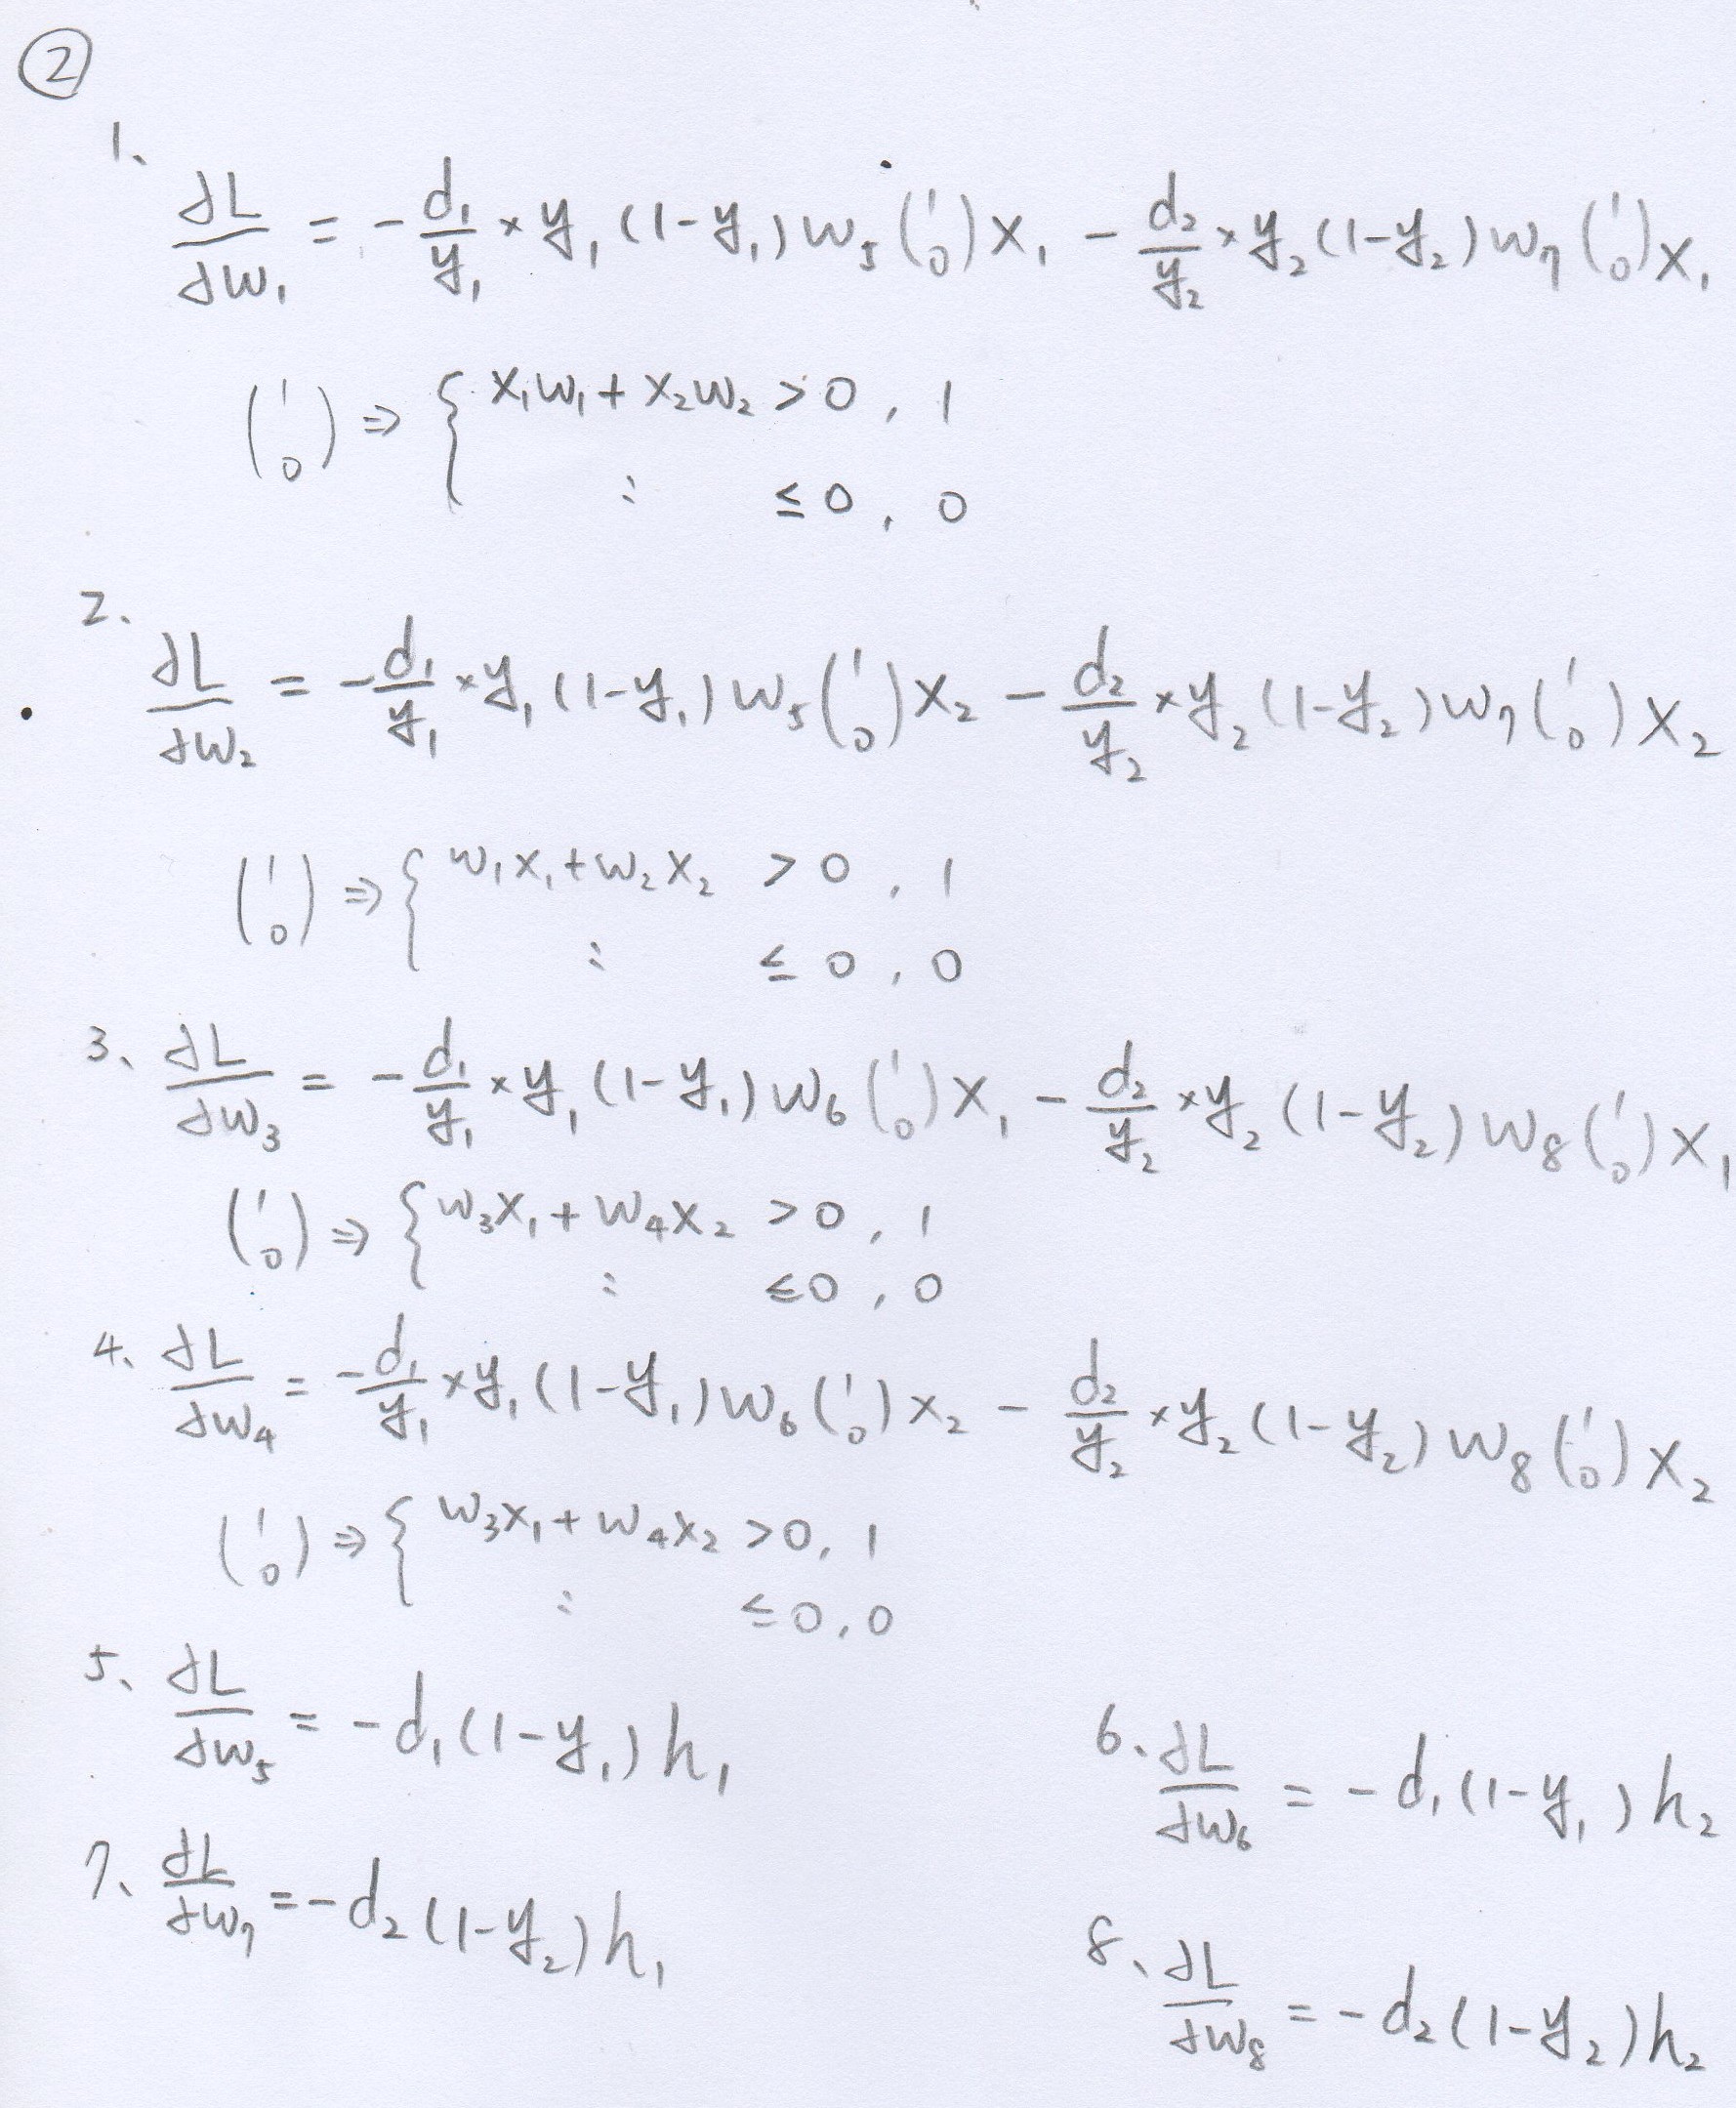 ②
1、
∂L/∂w₁ = -d₁/y₁ × y₁(1-y₁)w₅(¹₀)x₁ - d₂/y₂ × y₂(1-y₂)w₇(¹₀)x₁
(¹₀) ⇒ { x₁w₁ + x₂w₂ > 0, 1
: ≤ 0, 0
2、
∂L/∂w₂ = -d₁/y₁ × y₁(1-y₁)w₅(¹₀)x₂ - d₂/y₂ × y₂(1-y₂)w₇(¹₀)x₂
(¹₀) ⇒ { w₁x₁ + w₂x₂ > 0, 1
: ≤ 0, 0
3、∂L/∂w₃ = -d₁/y₁ × y₁(1-y₁)w₆(¹₀)x₁ - d₂/y₂ × y₂(1-y₂)w₈(¹₀)x₁
(¹₀) ⇒ { w₃x₁ + w₄x₂ > 0, 1
: ≤ 0, 0
4、∂L/∂w₄ = -d₁/y₁ × y₁(1-y₁)w₆(¹₀)x₂ - d₂/y₂ × y₂(1-y₂)w₈(¹₀)x₂
(¹₀) ⇒ { w₃x₁ + w₄x₂ > 0, 1
: ≤ 0, 0
5、∂L/∂w₅ = -d₁(1-y₁)h₁
6、∂L/∂w₆ = -d₁(1-y₁)h₂
7、∂L/∂w₇ = -d₂(1-y₂)h₁
8、∂L/∂w₈ = -d₂(1-y₂)h₂